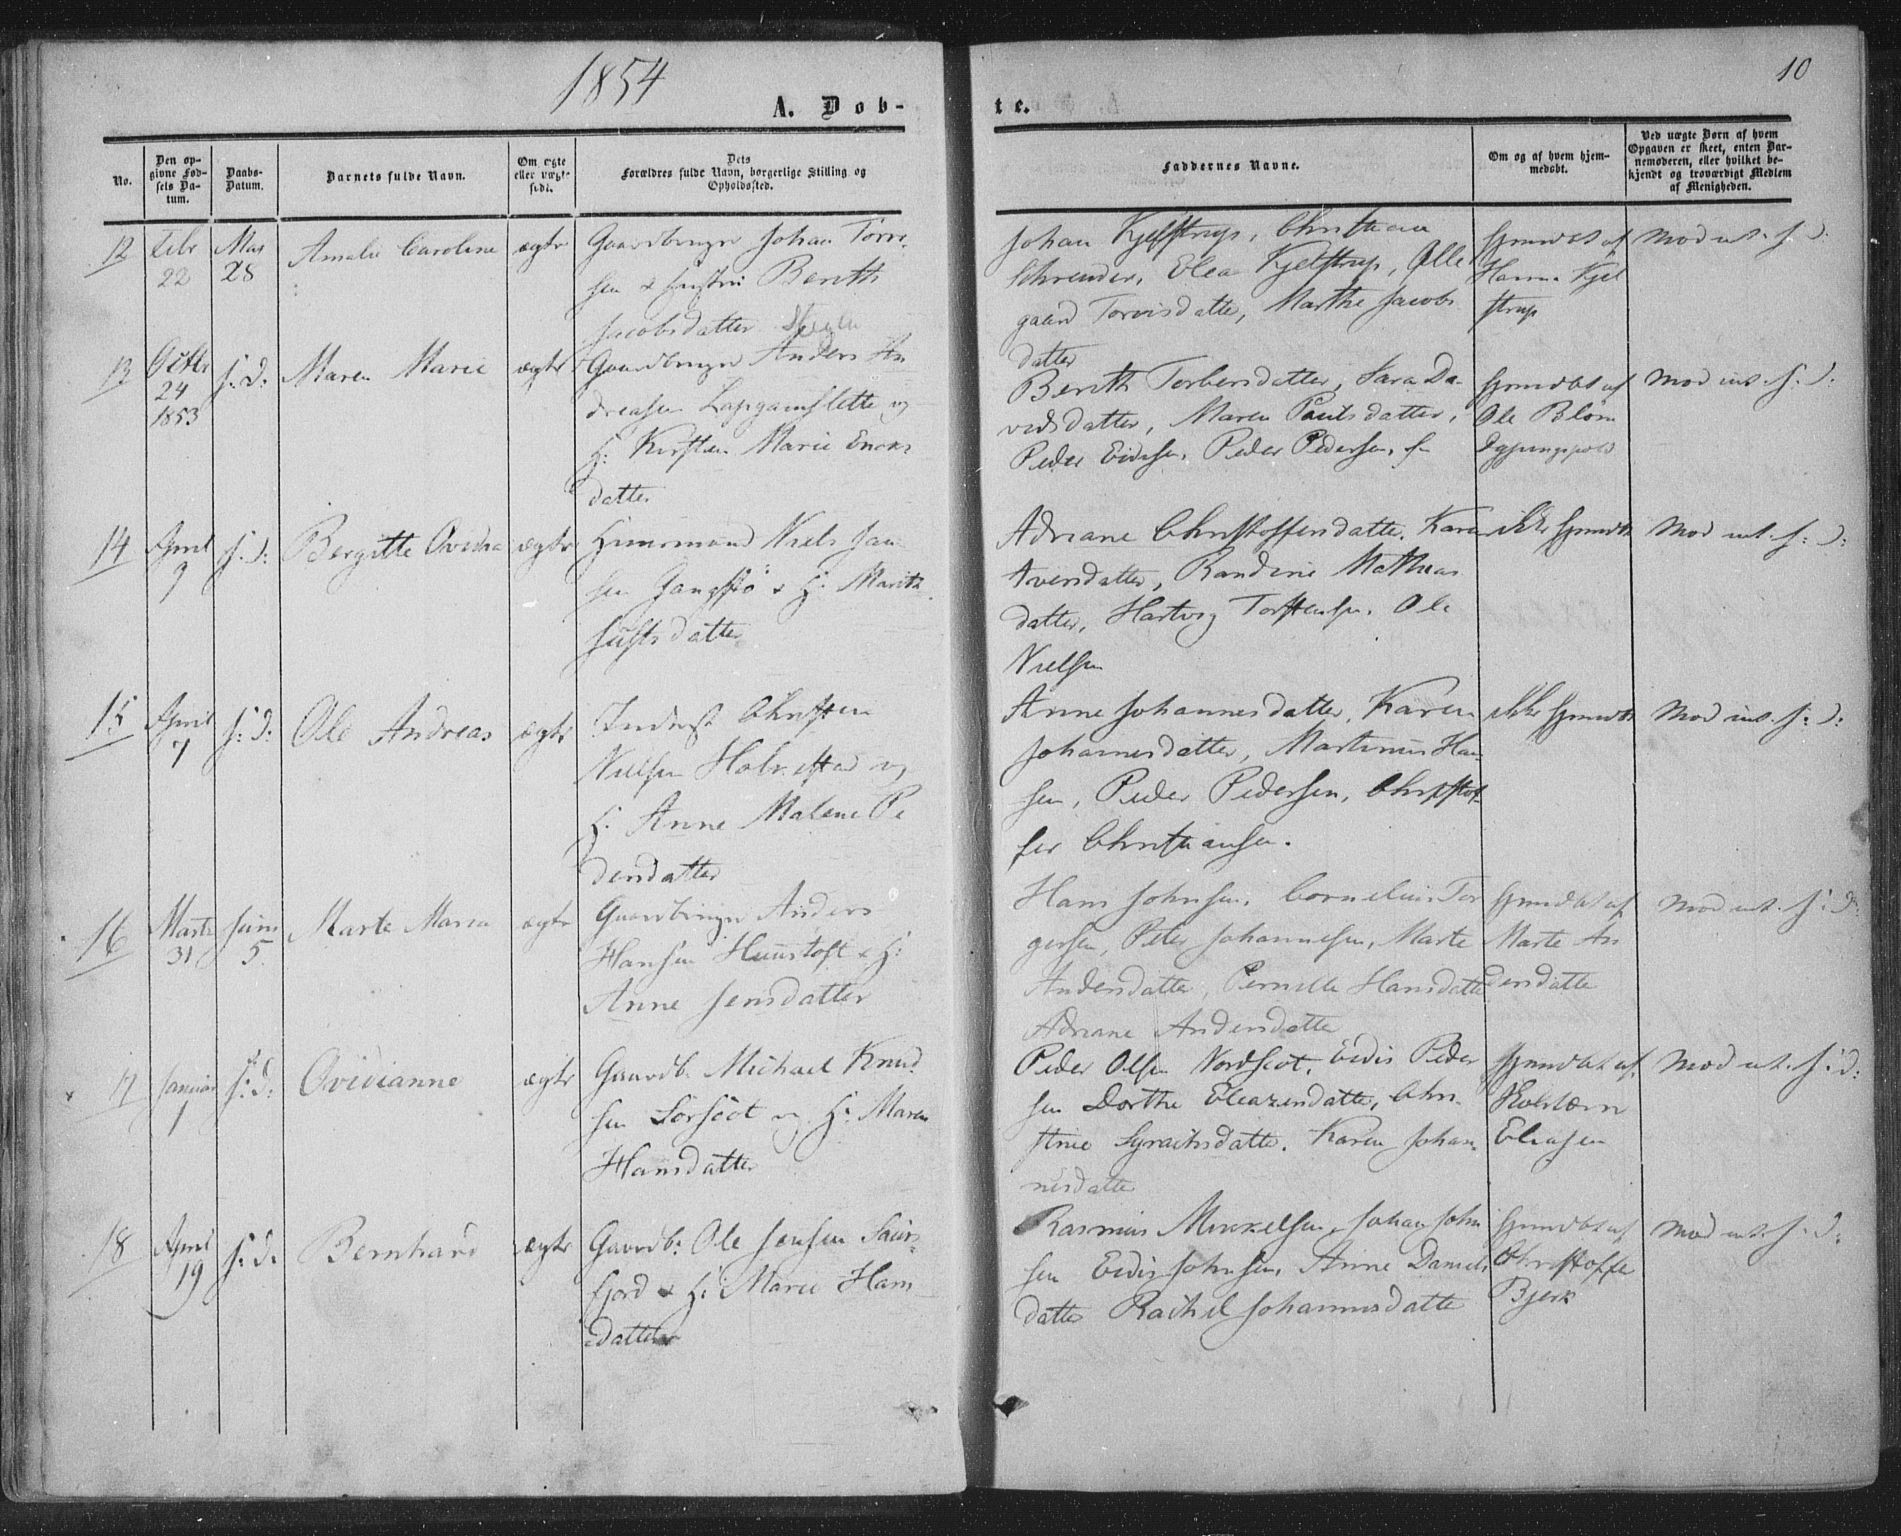 1854
A. Dob-
te.
10
No.
Den op-
givne Fød-
sels Da-
tum.
Daabs-
Datum.
Barnets fulde Navn.
Om ægte
eller uægte
født.
Dets
Forældres fulde Navn, borgerlige Stilling og
Opholdssted.
Faddernes Navne.
Om og af hvem hjem-
medøbt.
Ved uægte Børn af hvem
Opgaven er skeet, enten Bar-
nemoderen, eller hvilket be-
kjendt og troværdigt Medlem
af Menigheden.
12
Febr
22
Mai
28
Amalie Caroline
ægte
Gaardbruger Johan Torri
sen & Hustru Bereth
Jacobsdatter
Johan Kjelstrup, Christiane
Schreuder, Elea Kjelstrup, Olle
gaard Torrisdatter, Marthe Jacobs
datter
Hjemdøbt af
Hanna Kjel
strup
Mod int. s. d.
13
Octbr
24
1853
s: d:
Maren Marie
ægte
Gaardbruger Anders An
dreasen Lapgamslette og
H. Kirsten Marie Enoks
datter
Bereth Torbersdatter, Sara Da-
vidsdatter, Maren Paulsdatter,
Peder Eidisen, Peder Pedersen
Hjemdøbt af
Ole Bløm
Mod int. s: d:
14
April
9
s: d:
Bergitte Ovidia
ægte
Huusmand Niels Jan
sen Gangsiø & H: Marith
datter
Adriane Christoffersdatter, Karen
Iversdatter, Randine Mathias
datter, Hartvig Torstensen, Ole
Nielsen
ikke hjemdøbt
Mod int. s: d:
15
April
7
s: d:
Ole Andreas
ægte
Inderst Christen
Nielsen og
H: Anne Malene Pe
dersdatter
Anne Johannesdatter, Karen
Johannesdatter, Martinus Han
sen, Peder Pedersen, Christof
fer Christiansen.
ikke hjemdøbt
Mod int. s: d:
16
Marts
31
Juni
5
Marte Maria
ægte
Gaardbruger Anders
Hansen Huustoft & H:
Anne Jensdatter
Hans Johnsen, Cornelius Tor
gersen, Peter Johannesen, Marte
Andersdatter, Pernille Hansdatter
Adriane Andersdatter
Hjemdøbt af
Marte An
dersdatter
Mod int. s: d:
17
Januar
1
s: d:
Ovidianne
ægte
Gaardb. Michael Knud
sen Sørscot og H: Maren
Hansdatter
Peder Olsen Nordscot, Eidis Peder
sen Dorthe Eleazersdatter, Chri
stine Syrachsdatter, Karen Johan
nesdatter
Hjemdøbt af
Elnasen
Mod int. s: d:
18
April
19
s: d:
Bernhard
ægte
Gaardb: Ole Jensen Saurs
fjord & H: Marie Hans
datter
Rasmus Mikkelsen, Johan John
sen Eidis Johnsen, Anne Daniels
datter Rachel Johannesdatter
Hjemdøbt af
Christoffer
Bjerk
Mod int. s: d: